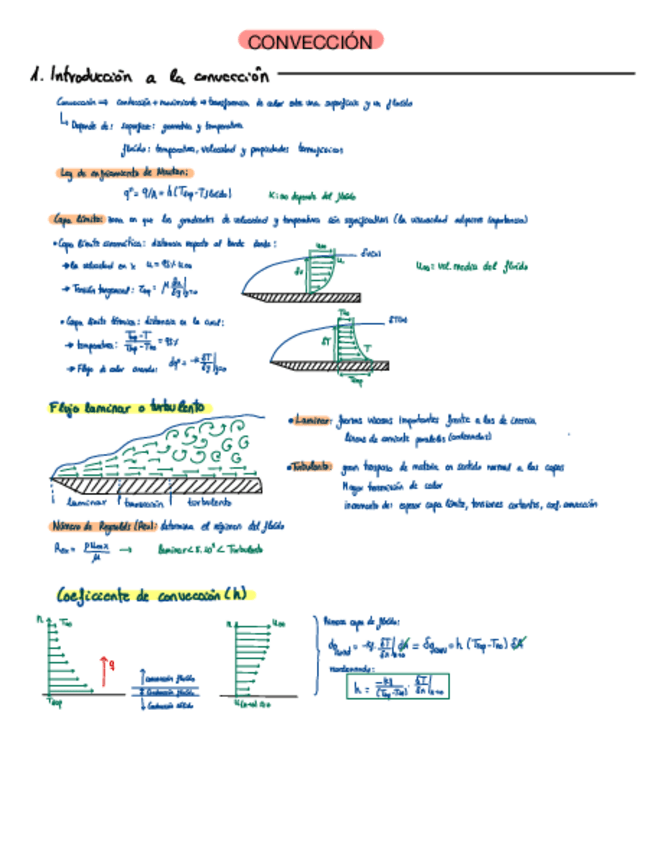 CONVECCIÓN
1. Introducción a la convección
Convección => conducción + movimiento => transferencia de calor entre una superficie y un fluido
Depende de: superficie: geometría y temperatura
fluido: temperatura, velocidad y propiedades termofísicas
Ley de enfriamiento de Newton:
q" = q/A = h (Tsup - Tfluido)
Capa límite: zona en que los gradientes de velocidad y temperatura son significativos (la viscosidad adquiere importancia)
• Capa límite cinemática: distancia respecto al borde donde:
→ la velocidad en x u = 99% u∞
→ Tensión tangencial:
u∞ = vel. media del fluido
• Capa límite térmica: distancia en la cual:
→ temperatura:
→ Flujo de calor
δT
T
Flujo laminar o turbulento
• Laminar: fuerzas viscosas importantes frente a las de inercia
líneas de corriente paralelas (ordenadas)
• Turbulento: gran traspaso de materia en sentido normal a las capas
Mayor transmisión de calor
incremento de: espesor capa límite, tensiones cortantes, coef. convección
laminar transición turbulento
Número de Reynolds (Rex): determina el régimen del fluido
Rex = ρu∞x / μ → laminar < 5·10⁵ < Turbulento
Coeficiente de convección (h)
n T∞
q
Tsup
convección fluido
Conducción fluido
Conducción sólido
n u∞
u(n=0)=0
Primera capa de fluido:
h = -kf / (Tsup-T∞) · δT/δn|n=0